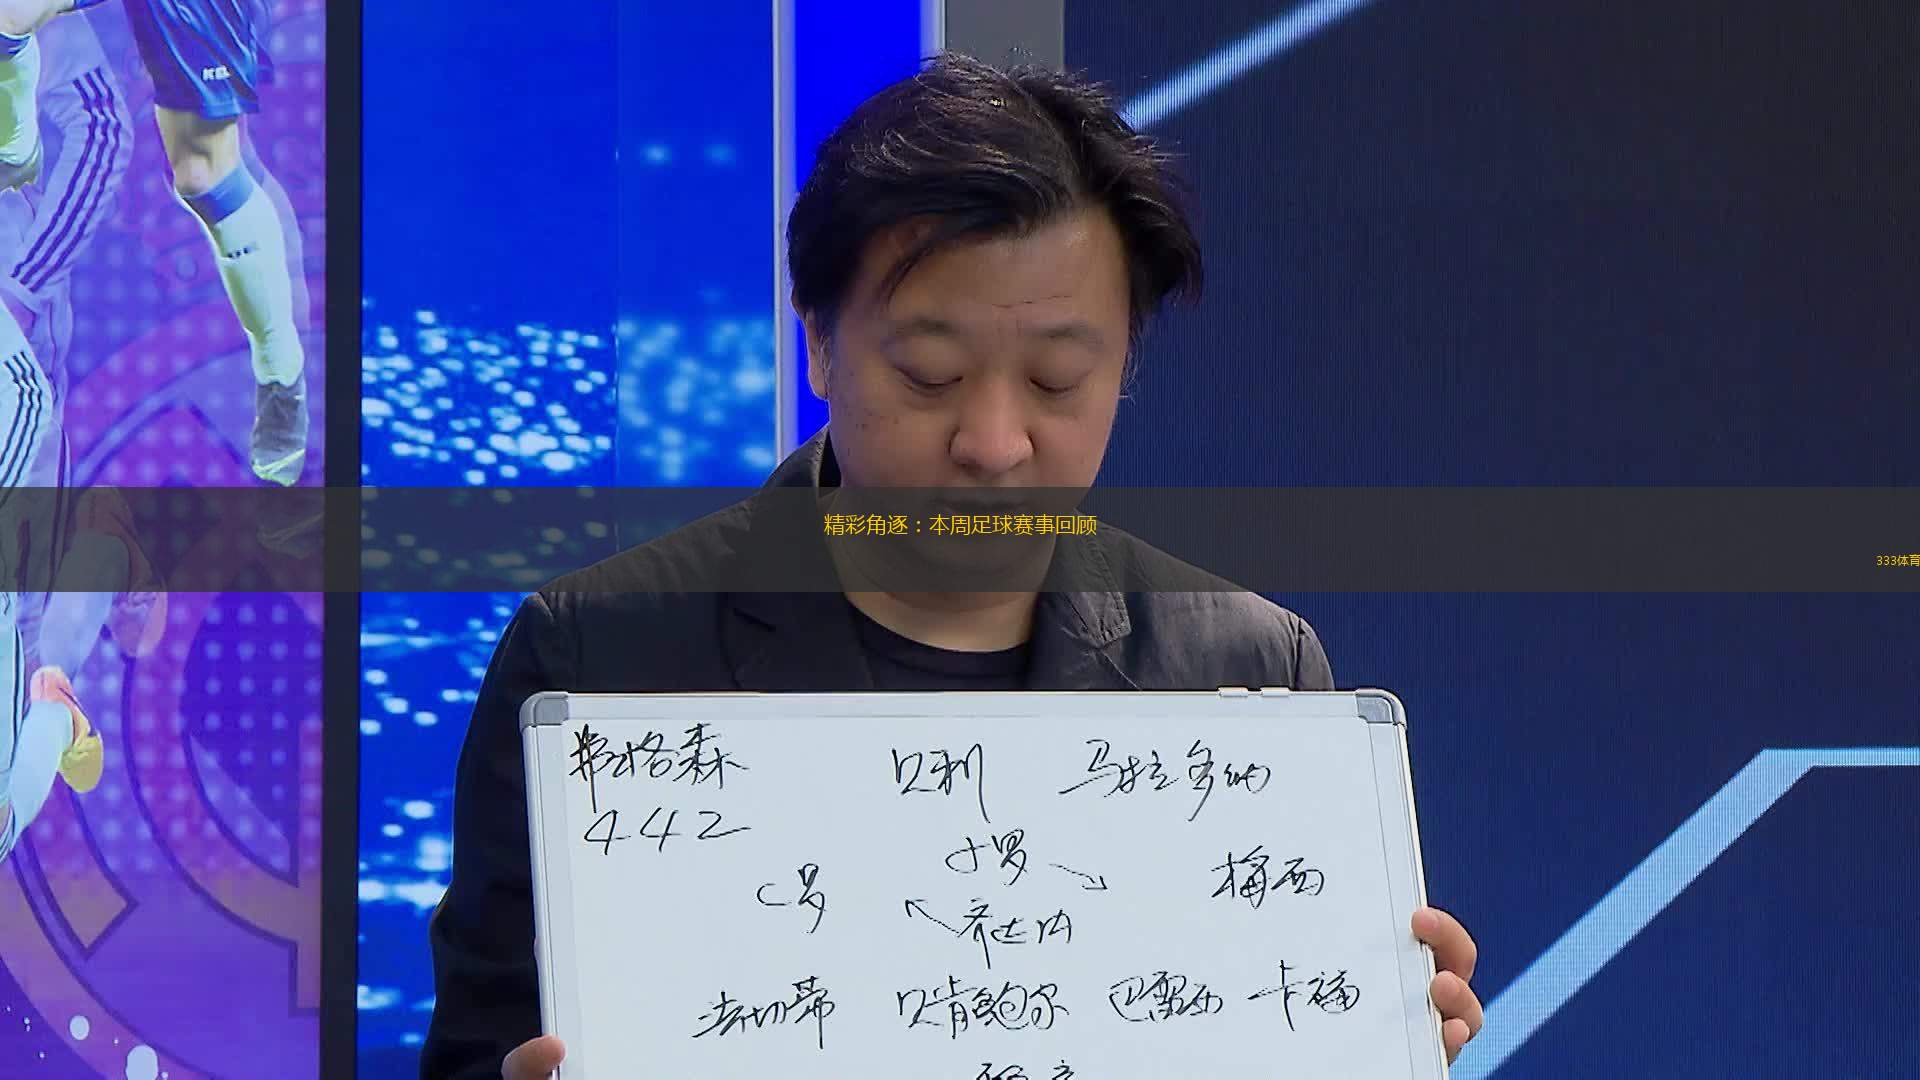 精彩角逐：本周足球赛事回顾
333体育
弗格森 贝利 马拉多纳
442
小罗
C罗 梅西
齐达内
法切蒂 贝肯鲍尔 巴雷西 卡福